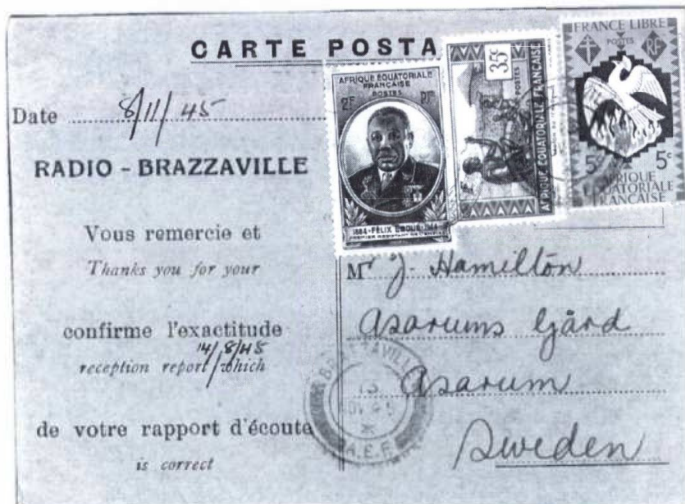 CARTE POSTA
Date 8/11/45
RADIO - BRAZZAVILLE
Vous remercie et
Thanks you for your
confirme l'exactitude
14/8/45
reception report which
de votre rapport d'écoute
is correct
AFRIQUE EQUATORIALE
FRANÇAISE
POSTES
2F 2F
1884-FÉLIX EBOUÉ-1944
35c
POSTES
AFRIQUE EQUATORIALE FRANÇAISE
FRANCE LIBRE
POSTES
RF
5c 5c
AFRIQUE
EQUATORIALE
FRANÇAISE
Mr J. Hamilton
Asarums Gård
Asarum
Sweden
BRAZZAVILLE
A.E.F.